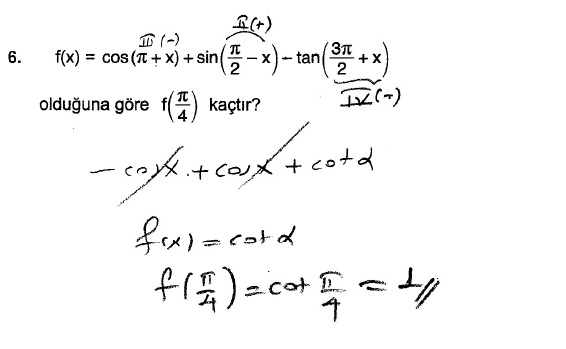 III (-) II (+)
6. f(x) = cos(π + x) + sin(π/2 − x) − tan(3π/2 + x)
olduğuna göre f(π/4) kaçtır? IV (-)
- cosx. + cosx + cotα
f(x) = cotα
f(π/4) = cot π/4 = 1//